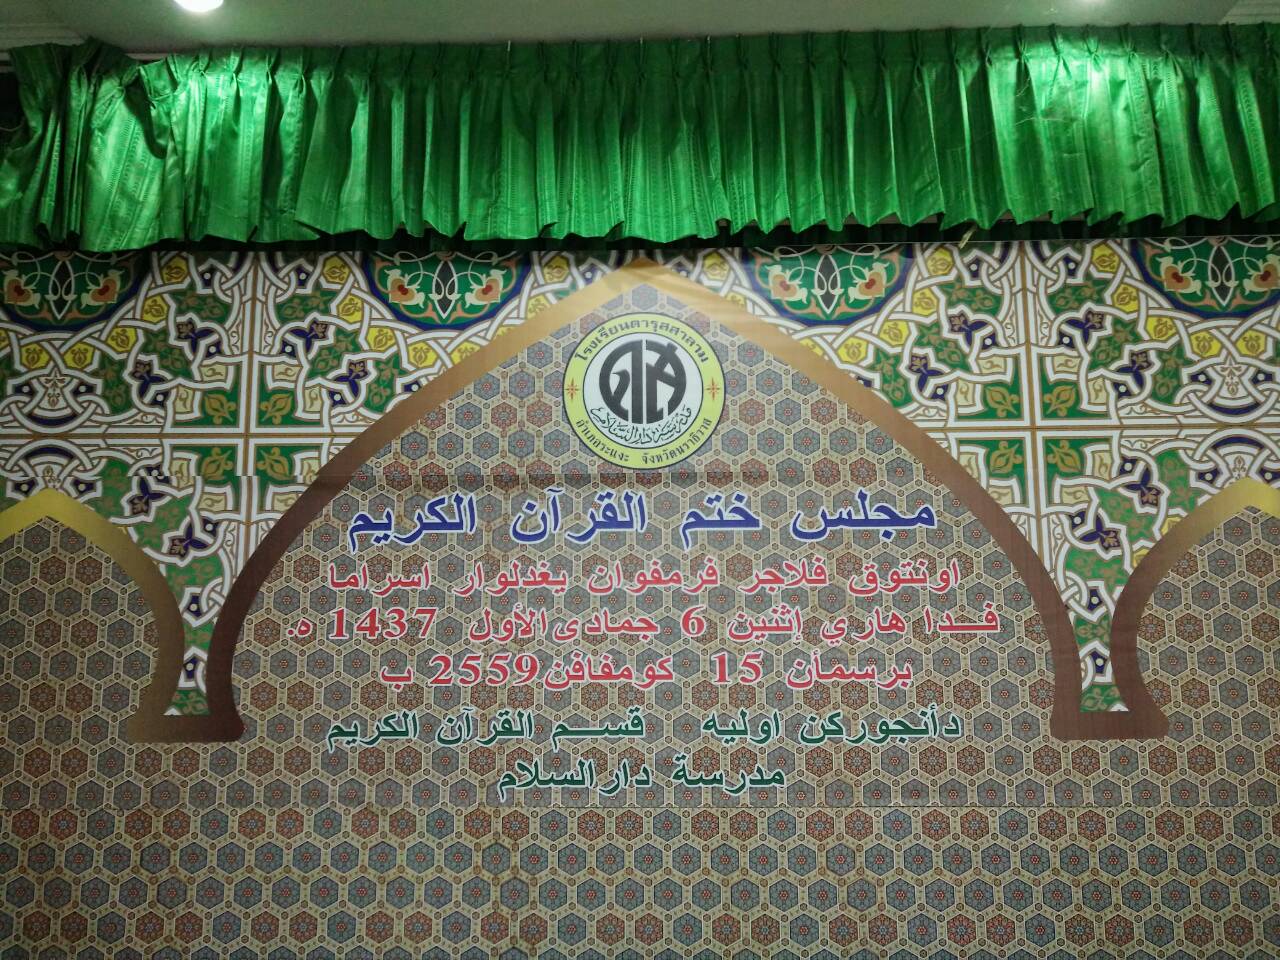 โรงเรียนดารุสสาลาม
مدرسة دار السلام
อำเภอระแงะ จังหวัดนราธิวาส
مجلس ختم القرآن الكريم
اونتوق فلاجر فرمفوان يغدلوار اسراما
فدا هاري إثنين 6 جمادى الأول 1437 ه.
برسمأن 15 كومفافن 2559 ب
دأنجوركن اوليه قسم القرآن الكريم
مدرسة دارالسلام